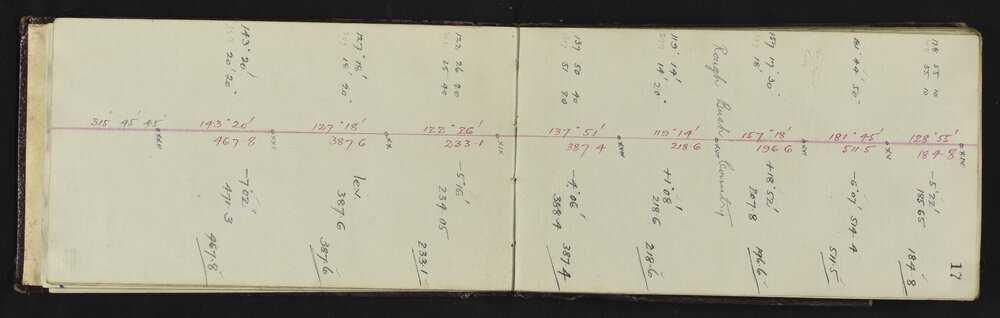 17
128 55 10
55 10
128°55'
184·8
oXIV
-5°22'
185·65
184·8
181°44'50"
181°45'
511·5
oXV
-6°07'
514·4
511·5
157°17'30"
18'
157°18'
196·6
oXVI
+18°52'
207·8
196·6
Rough Bush Country
119°14'
14'20"
119°14'
218·6
oXVII
+1°08'
218·6
218·6
137 50 40
51 20
137°51'
387·4
oXVIII
-4°06'
388·4
387·4
122 26 20
25 40
122°26'
233·1
oXIX
-5°16'
234·05
233·1
127°18'
18'20"
127°18'
387·6
oXX
lev.
387·6
387·6
143°20'
20'20"
143°20'
467·8
oXXI
-7°02'
471·3
467·8
315 45 45
oXXII